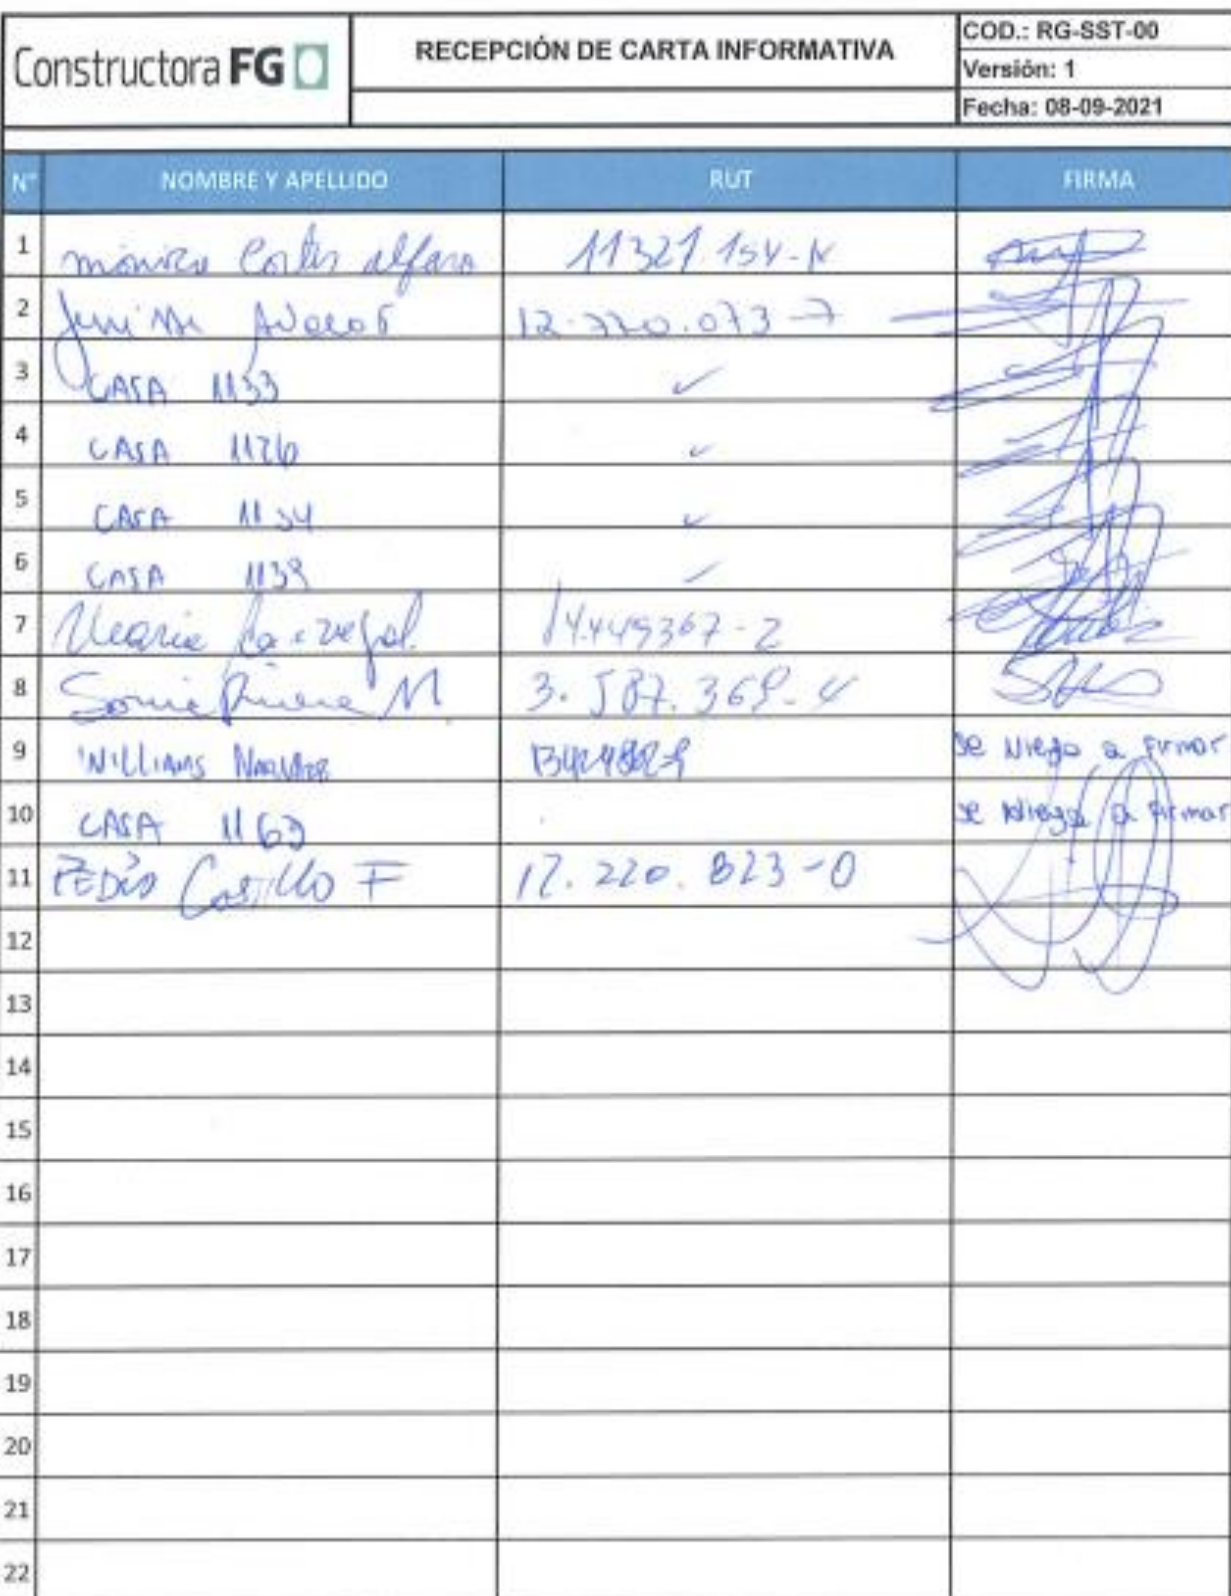 Constructora FG
RECEPCIÓN DE CARTA INFORMATIVA
COD.: RG-SST-00
Versión: 1
Fecha: 08-09-2021
N° NOMBRE Y APELLIDO RUT FIRMA
1 mónica Cortes alfaro 11321.154-K
2 12.770.073-7
3 CASA 1133 ✓
4 CASA 1126 ✓
5 CASA 1134 ✓
6 CASA 1139 ✓
7 Maria Carvajal. 14.449367-2
8 Sonia Rivera M. 3.587.369-4
9 WILLIAMS se niego a firmar
10 CASA 1163 se niega a firmar
11 PEDRO Castillo F 17.220.823-0
12
13
14
15
16
17
18
19
20
21
22